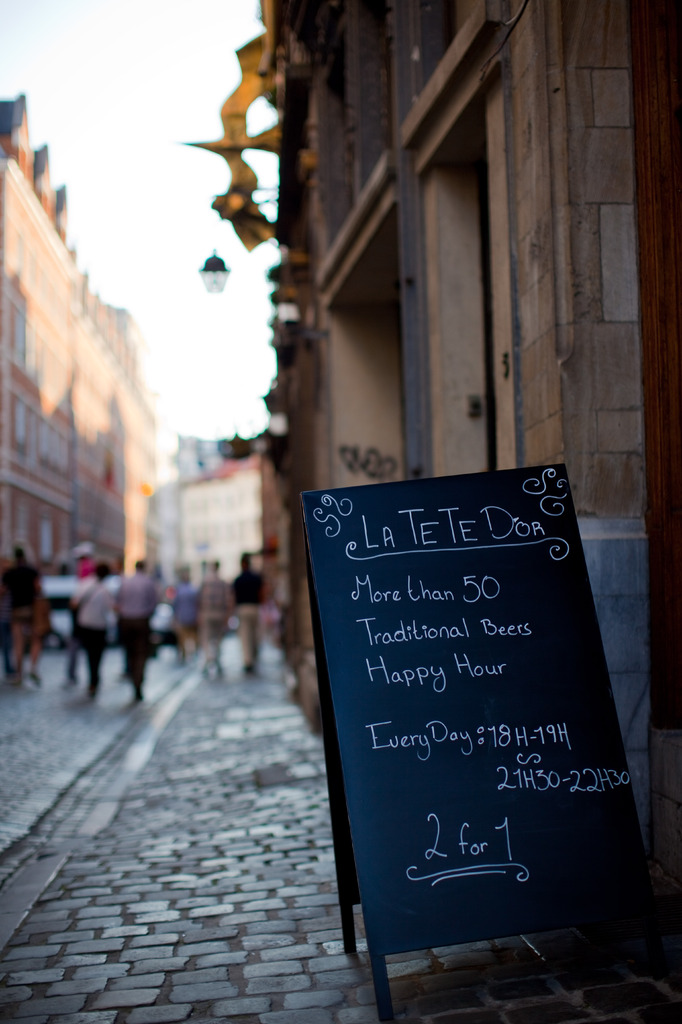 La TeTe D'or
More than 50
Traditional Beers
Happy Hour
Every Day: 18H-19H
21H30-22H30
2 for 1